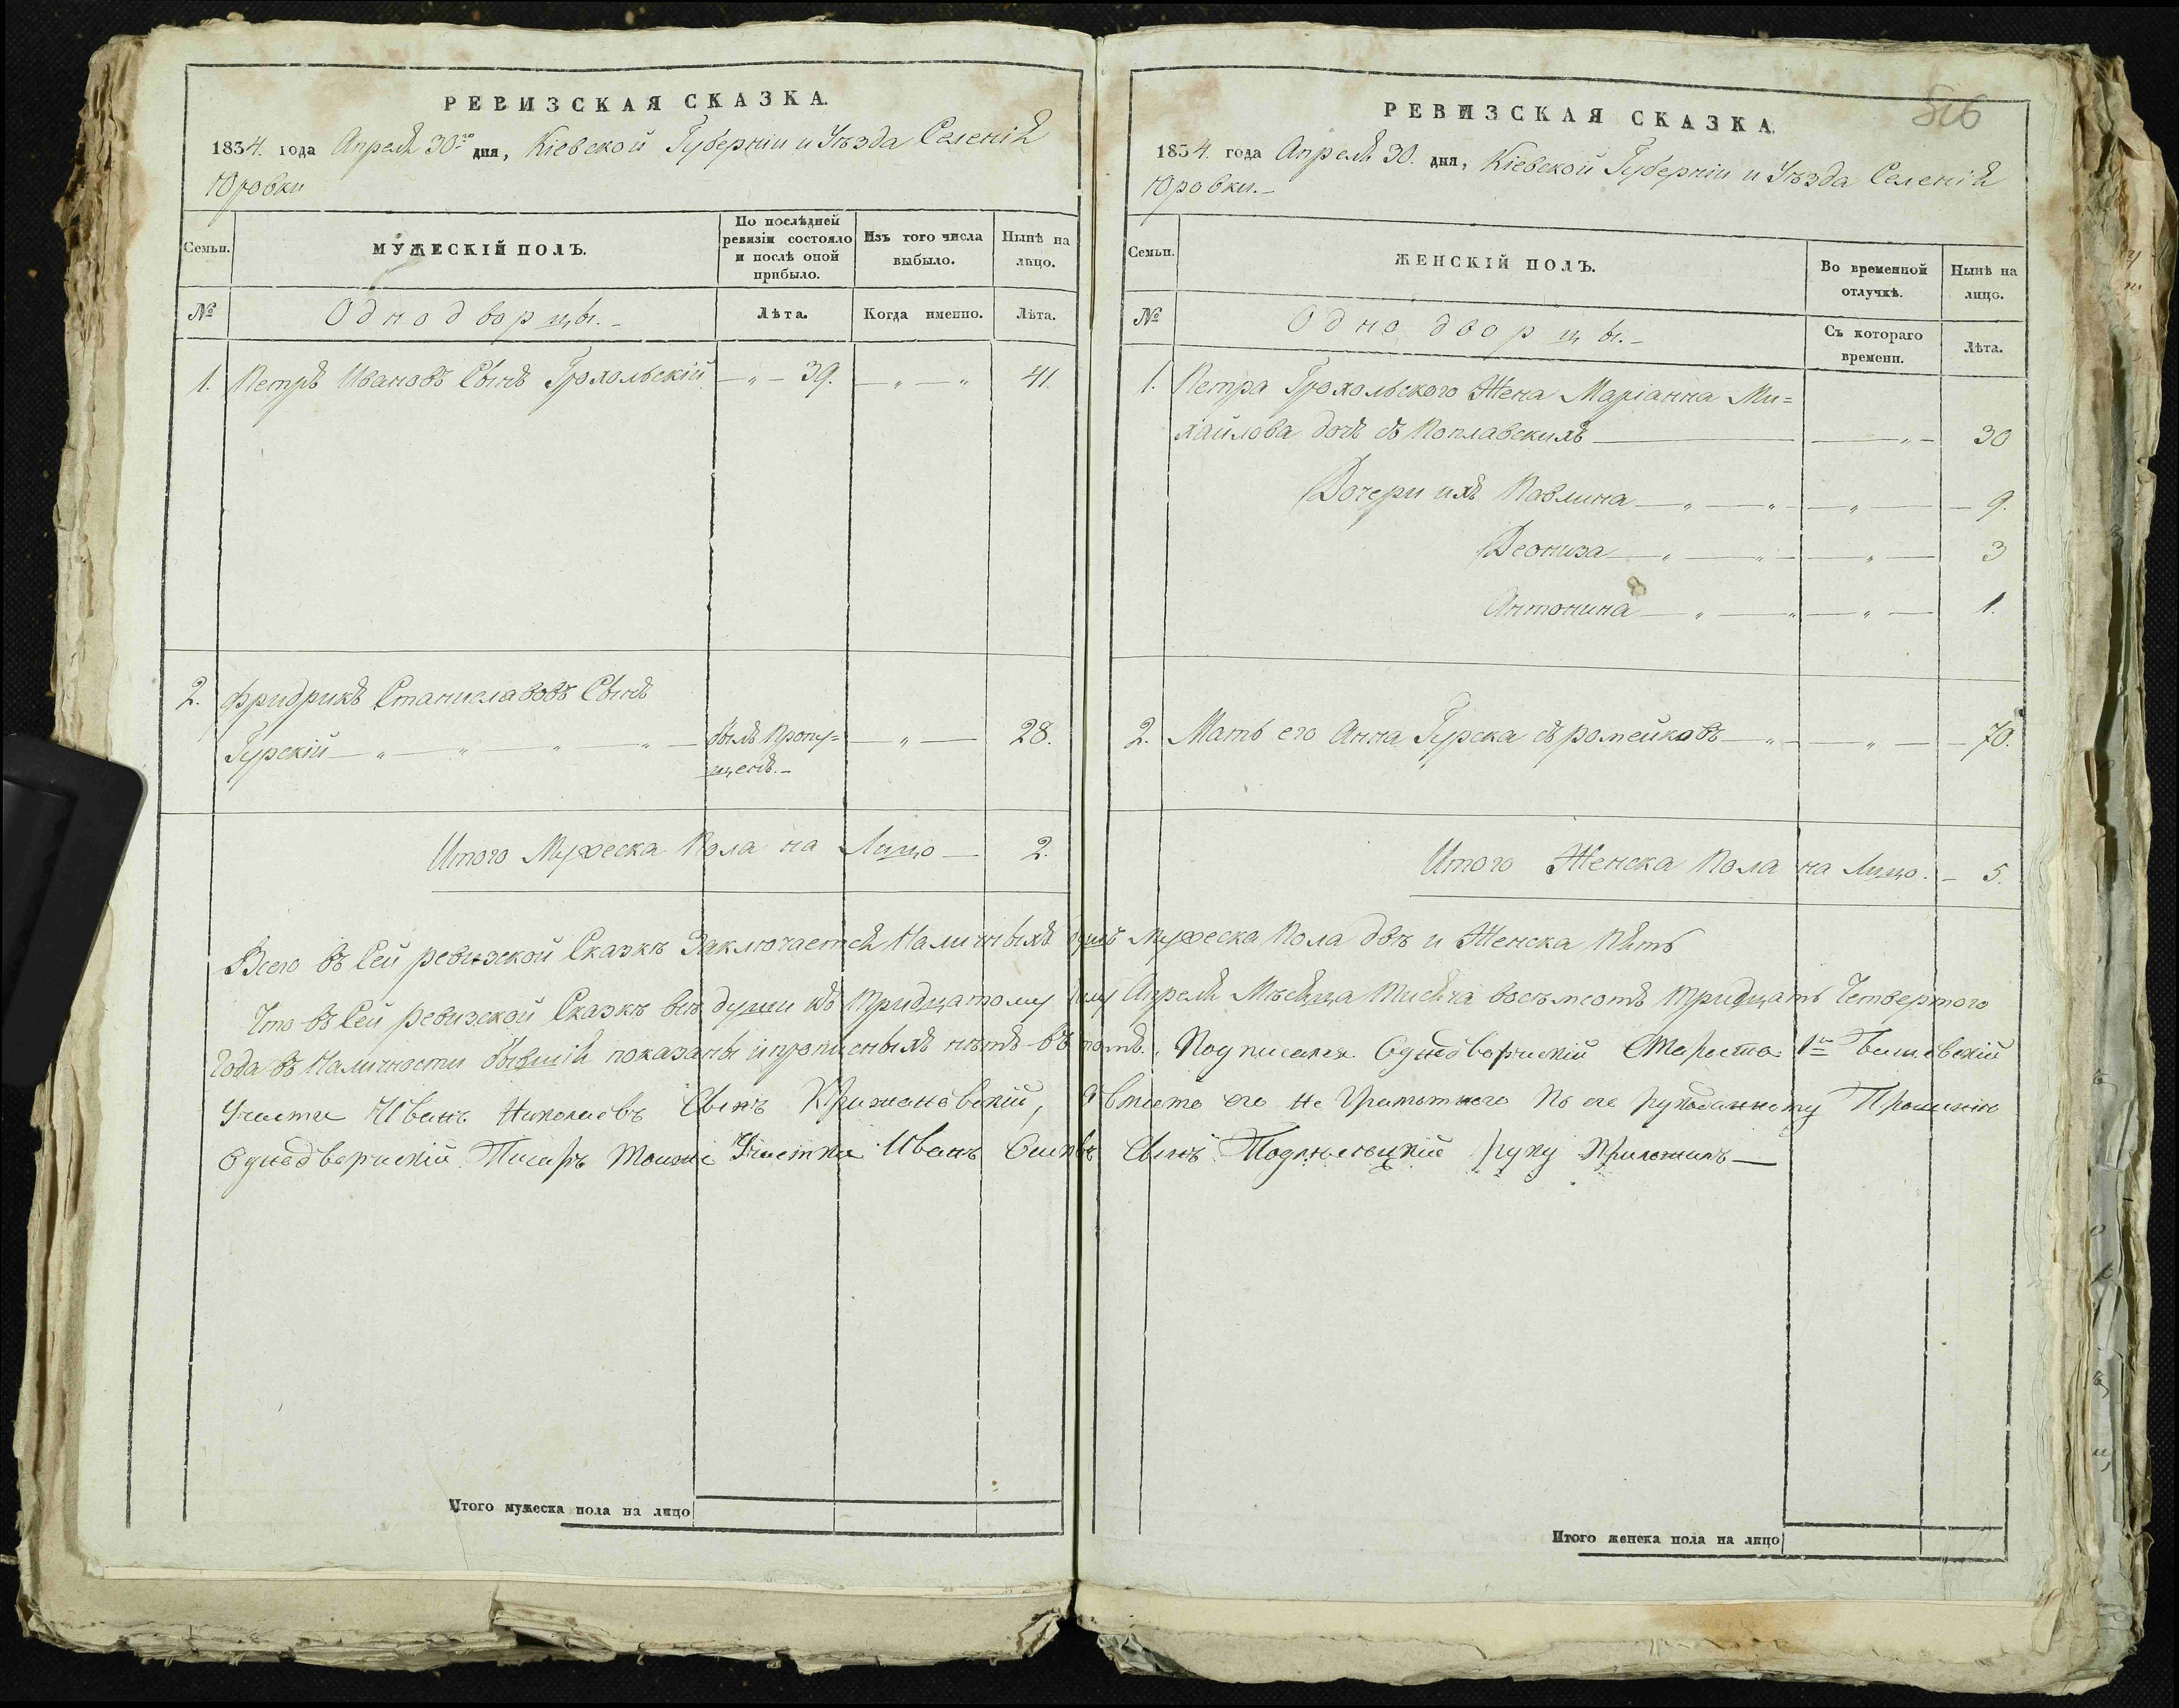 РЕВИЗСКАЯ СКАЗКА.
1834. года Апреля 30го дня, Кіевской Губерніи и Уѣзда Селенія
Юровки
Семьи.
МУЖЕСКІЙ ПОЛЪ.
По послѣдней ревизіи состояло и послѣ оной прибыло.
Изъ того числа выбыло.
Нынѣ на лицо.
№
Однодворцы.-
Лѣта.
Когда именно.
Лѣта.
1. Петръ Ивановъ Сынъ Грохольскій — „ — 39. — „ — „ 41.
2. Фридрикъ Станиславовъ Сынъ
Гурскій — „ — „ — „ — „ — былъ Пропу= — „ — 28.
щенъ.-
Итого Мужеска Пола на Лицо — 2.
РЕВИЗСКАЯ СКАЗКА.
526
1834. года Апреля 30. дня, Кіевской Губерніи и Уѣзда Селенія
Юровки.-
Семьи.
ЖЕНСКІЙ ПОЛЪ.
Во временной отлучкѣ.
Нынѣ на лицо.
№
Однодворцы.-
Съ котораго времени.
Лѣта.
1. Петра Грохольского Жена Маріанна Ми=
хайлова дочь съ Поплавскихъ — — „ — 30
Дочери ихъ Павлина — „ — „ — „ — 9.
Деониза — „ — „ — „ — 3
Антонина — „ — „ — „ — 1.
2. Мать его Анна Гурска съ ромейковъ — „ — „ — 70.
Итого Женска Пола на Лицо. — 5.
Всего въ Сей ревизской Сказкѣ Заключается Наличныхъ душъ Мужеска Пола двѣ и Женска Пять
Что въ Сей ревизской Сказкѣ всѣ души къ тридцатому Апреля Мѣсяца тисяча восемсотъ тридцать Четвертого
Года въ Наличности бывшія показаны и прописныхъ нѣтъ въ томъ. Подписался Однодворческій Староста 1го
Участка Иванъ Николаевъ Сынъ Крижановскій, а вместо его не Грамотного По его рукоданному Прошенію
Однодворческій Писаръ Тогоже Участка Иванъ Сынъ руку Приложилъ —
Итого мужеска пола на лицо
Итого женска пола на лицо